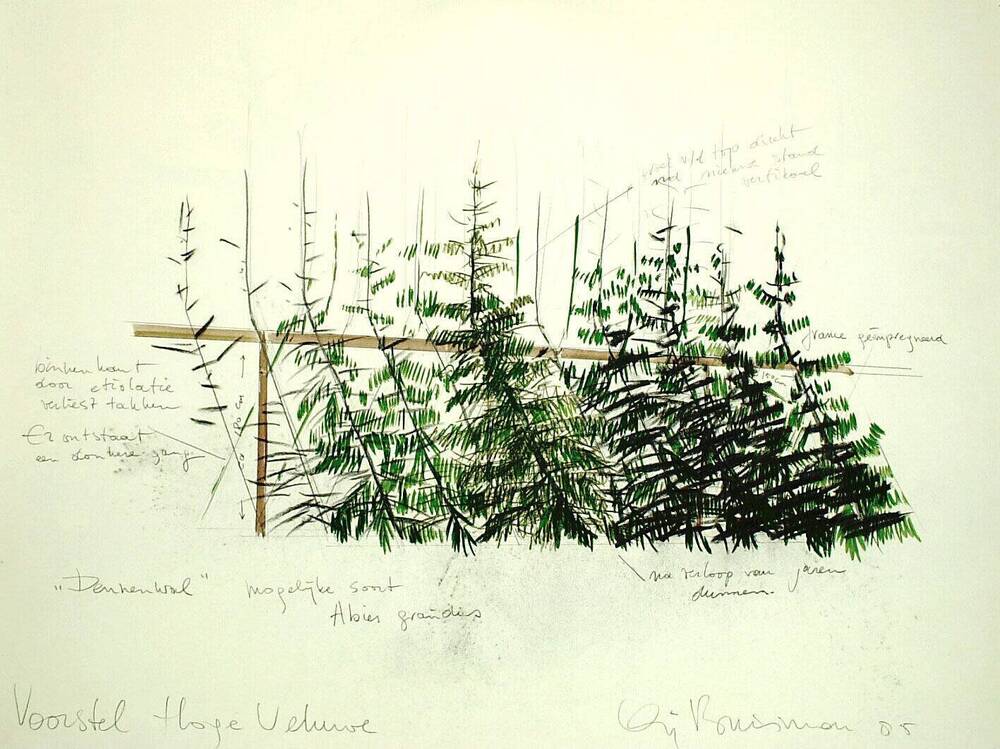 v/d top direkt
nieuwe stand
vertikaal
frame geïmpregneerd
binnenkant
door etiolatie
verliest takken
Er ontstaat
een donkere gang
"Dennenwal" mogelijke soort
Abies grandis
na verloop van jaren
dunnen.
Voorstel Hoge Veluwe
05